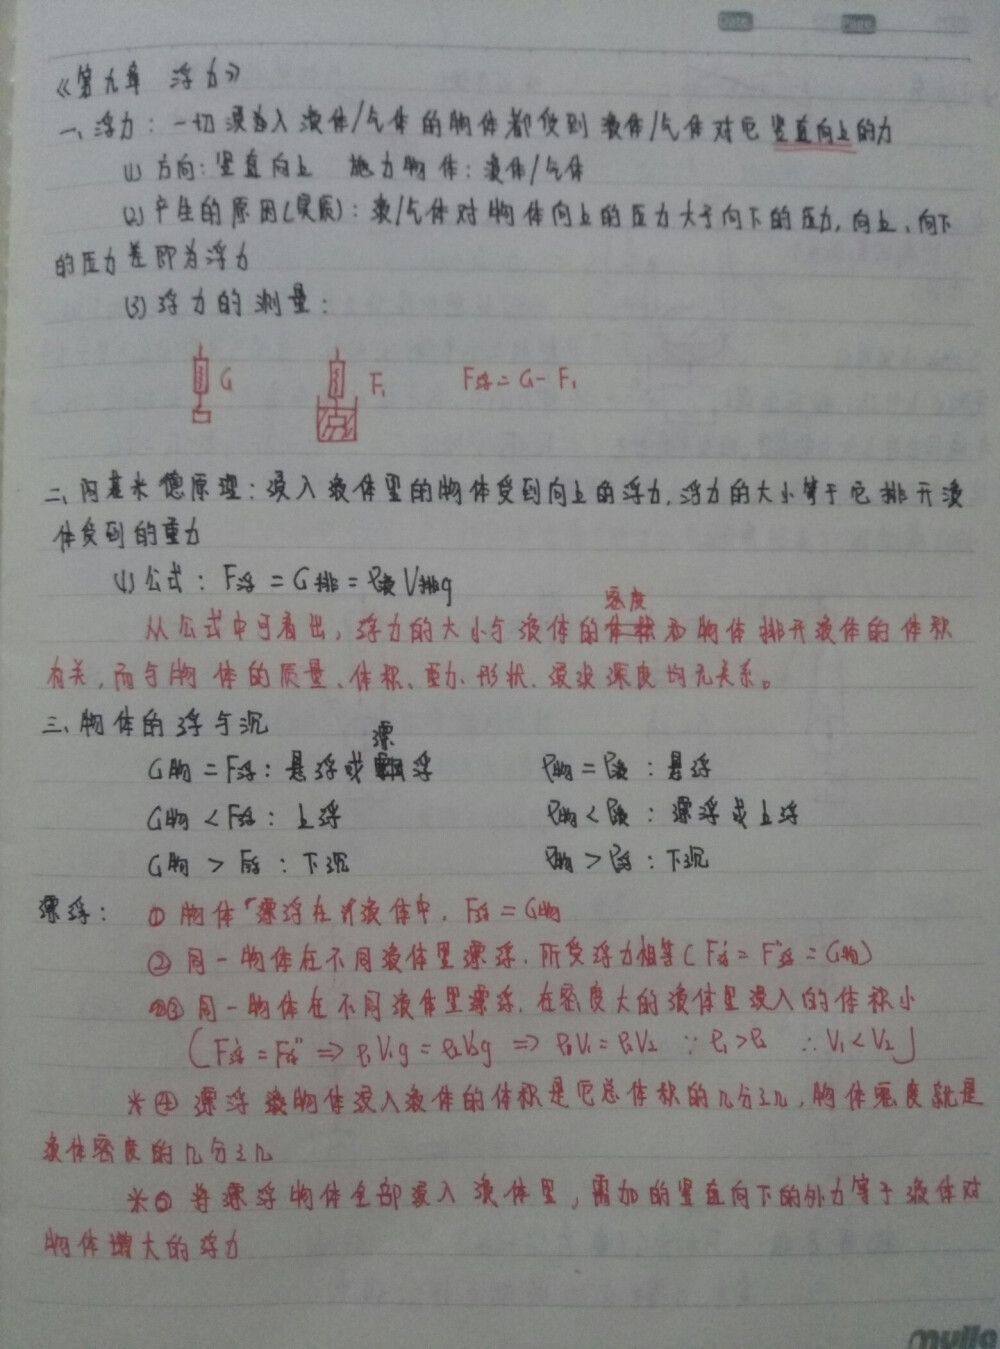 Date Page
《第九章 浮力》
一、浮力：一切浸入液体/气体的物体都受到液体/气体对它竖直向上的力
(1) 方向：竖直向上 施力物体：液体/气体
(2) 产生的原因(实质)：液/气体对物体向上的压力大于向下的压力，向上、向下
的压力差即为浮力
(3) 浮力的测量：
G F₁ F浮=G-F₁
二、阿基米德原理：浸入液体里的物体受到向上的浮力，浮力的大小等于它排开液
体受到的重力
(1) 公式：F浮=G排=ρ液V排g
密度
从公式中可看出，浮力的大小与液体的体积和物体排开液体的体积
有关，而与物体的质量、体积、重力、形状、浸没深度均无关系。
三、物体的浮与沉
漂
G物=F浮：悬浮或飘浮 ρ物=ρ液：悬浮
G物<F浮：上浮 ρ物<ρ液：漂浮或上浮
G物>F浮：下沉 ρ物>ρ浮：下沉
漂浮：①物体"漂浮在"液体中，F浮=G物
②同一物体在不同液体里漂浮，所受浮力相等(F浮'=F浮"=G物)
③同一物体在不同液体里漂浮，在密度大的液体里浸入的体积小
(F浮'=F浮"⇒ρ₁V₁g=ρ₂V₂g⇒ρ₁V₁=ρ₂V₂ ∵ρ₁>ρ₂ ∴V₁<V₂)
*④漂浮物体浸入液体的体积是它总体积的几分之几，物体密度就是
液体密度的几分之几
*⑤将漂浮物体全部浸入液体里，需加的竖直向下的外力等于液体对
物体增大的浮力